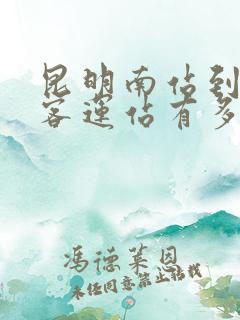 昆明南站到
客运站有多
冯德莱恩
未经同意禁止转载